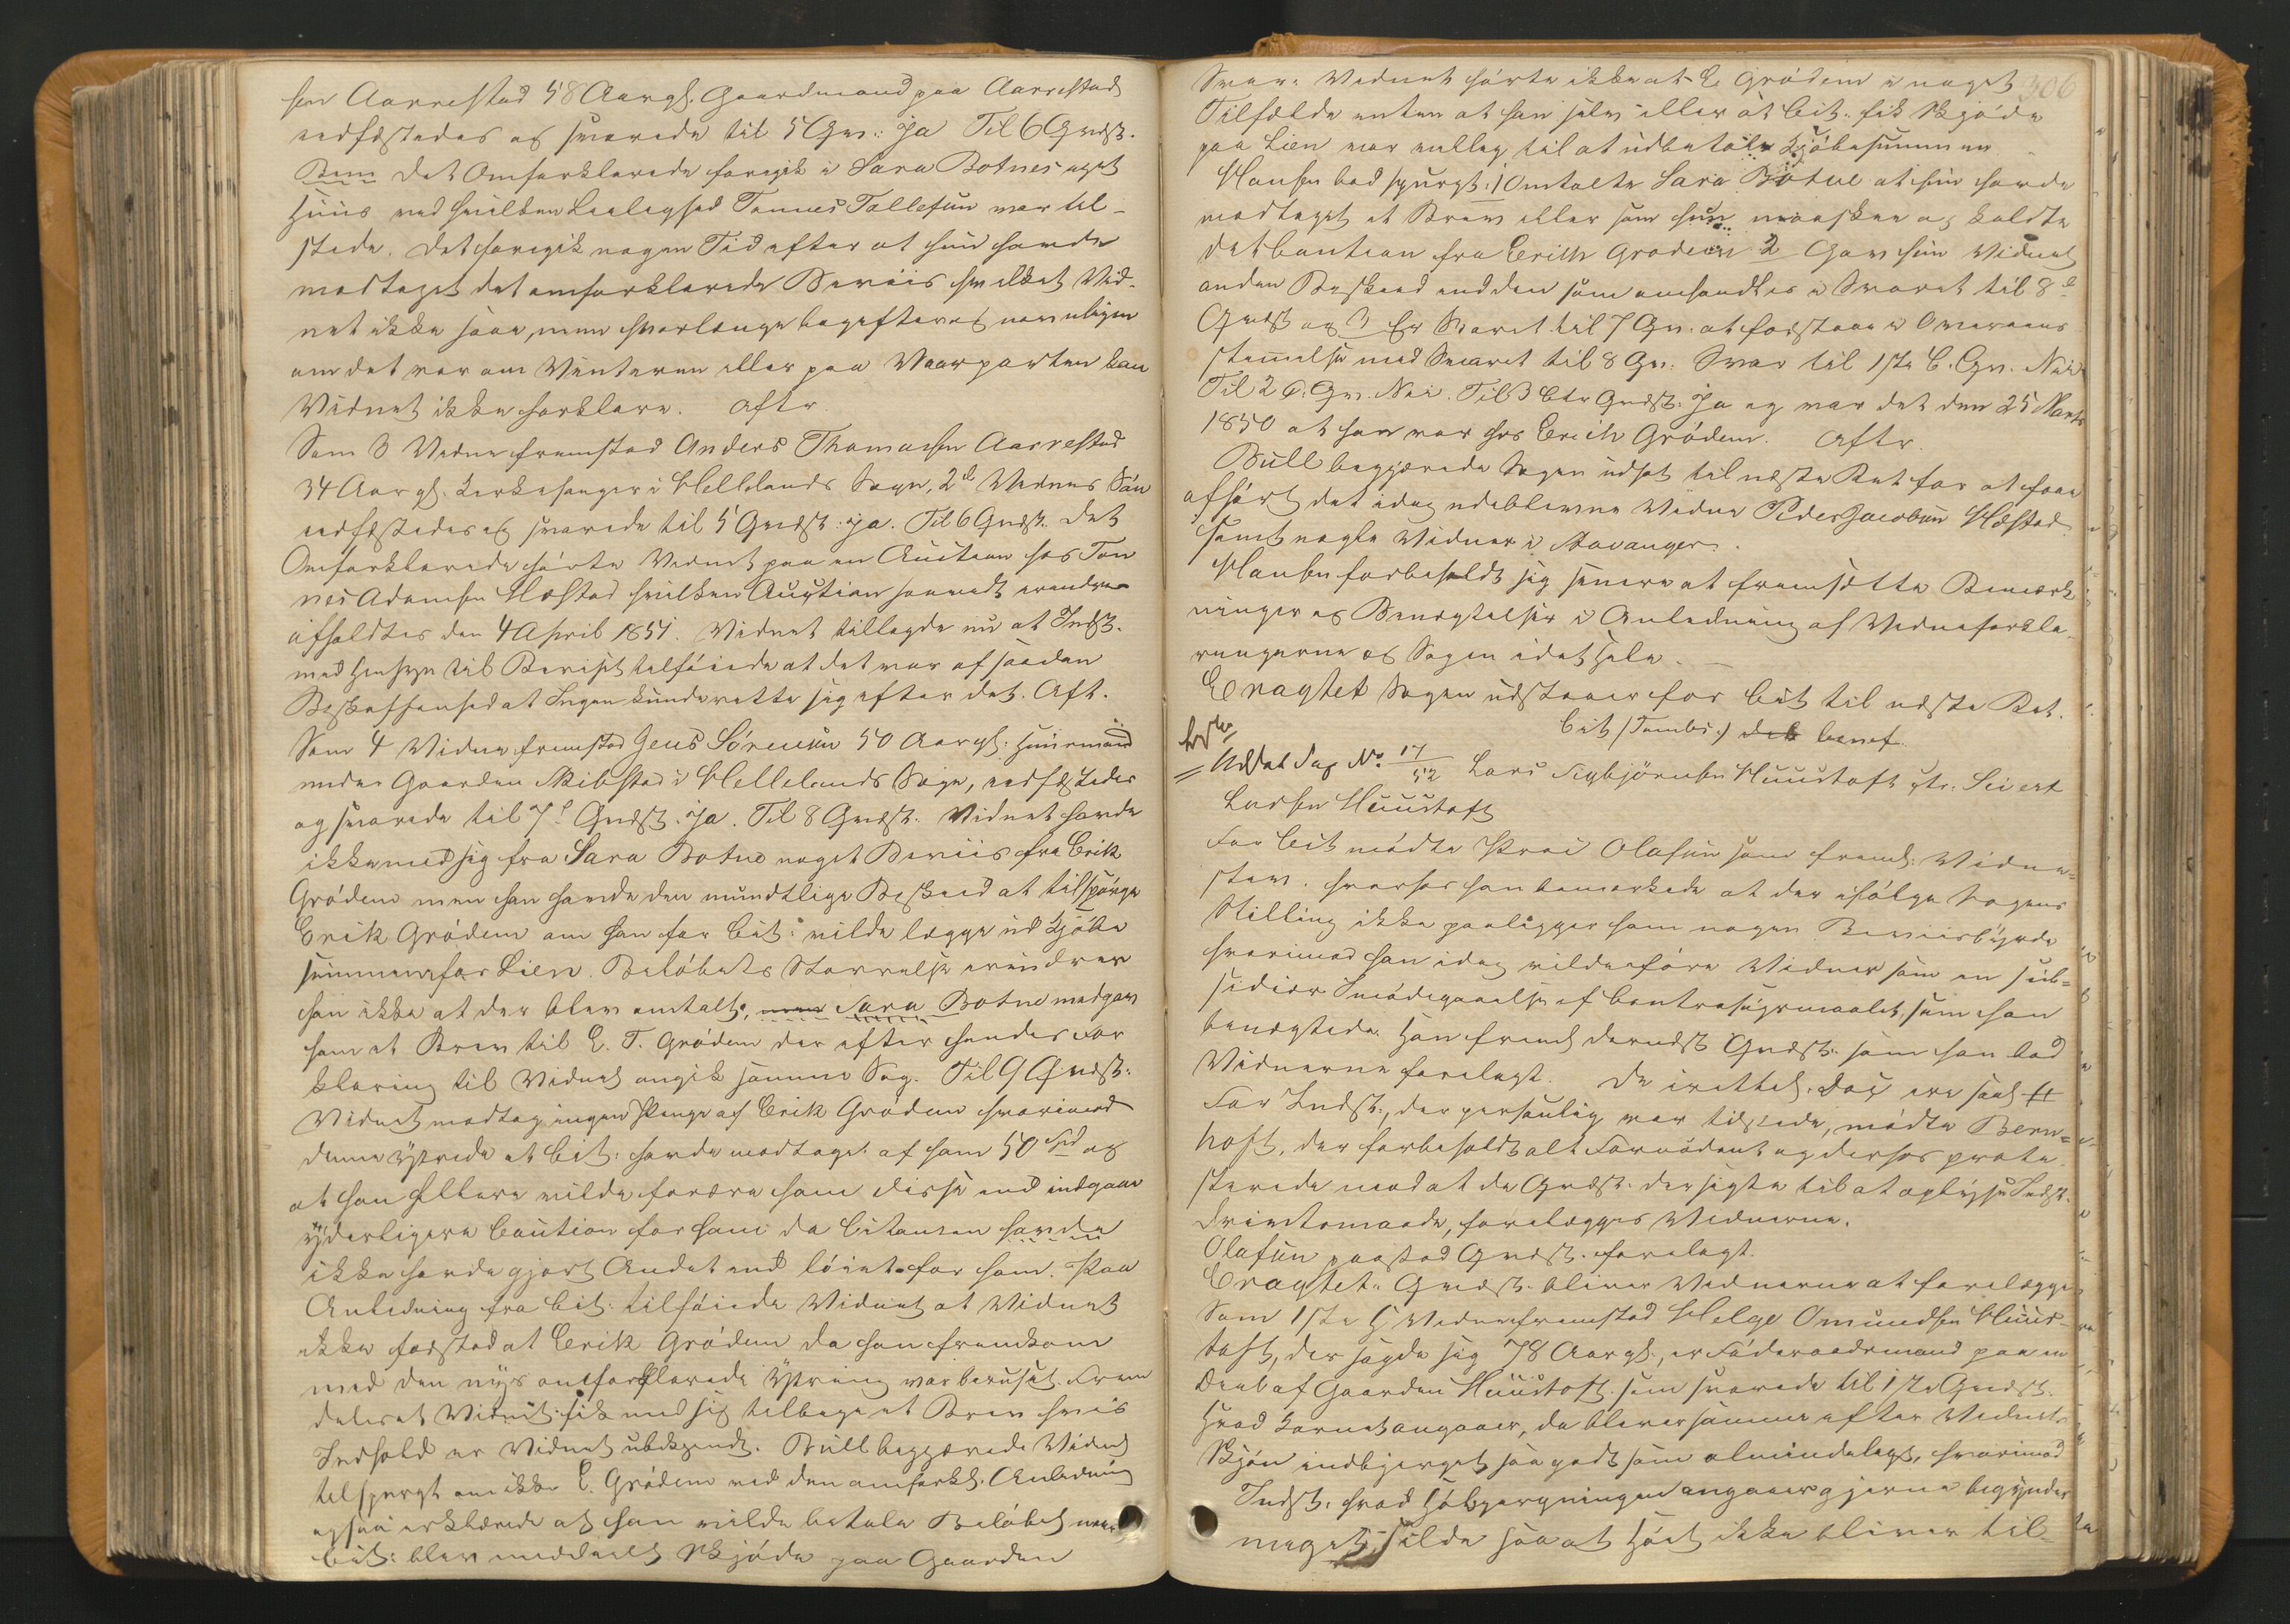 sen Aarrestad 58 Aar gl. Gaardmand paa Aarrestad
edfæstedes og svarede til 5 Qv.: Ja Til 6 Qvæst.
Bem Det Omforklarede foregik i Sara Botnes eget
Huus ved hvilken Leilighed Tønnes Tollefsen var til-
stede. Det foregik nogen Tid efter at hun havde
modtaget det omforklarede Beviis hvilket Vid-
net ikke saae, men hvorlænge bagefter og navnligen
om det var om Vinteren eller paa Vaarparten kan
Vidnet ikke forklare. Aftr
Som 3 Vidne fremstod Anders Thomasen Aarrestad
34 Aar gl. Kirkesanger i Hellelands Sogn, 2d Vidnes Søn
edfæstedes og svarede til 5 Qvæst: Ja. Til 6 Qvæst. Det
Omforklarede hørte Vidnet paa en Auction hos Tøn
nes Adamsen Hæstad hvilken Auction saavidt erindres
afholdtes den 4 April 1851. Vidnet tillagde nu at Indst.
med Hensyn til Beviset tilføiede at det var af saadan
Beskaffenhed at Ingen kunde rette sig efter det. Aft.
Som 4 Vidne fremstod Jens Sørensen 50 Aar gl: Huusmand
under Gaarden Skibstad i Hellelands Sogn, edfæstedes
og svarede til 7de Qvæst: Ja. Til 8 Qvæst: Vidnet havde
ikke med sig fra Sara Botne noget Beviis fra Erik
Grødem men han havde den mundtlige Besked at tilspørge
Erik Grødem om han for Cit: vilde lægge ud Kjøbe
summen for Lien. Beløbets Størrelse erindrer
han ikke at der blev omtalt, men Sara Botne medgav
ham et Brev til E. T. Grødem der efter hendes For
klaring til Vidnet angik samme Sag. Til 9 Qvæst:
Vidnet modtog ingen Penge af Erik Grødem hvorimod
denne yttrede at Cit: havde modtaget af ham 50 Spd og
at han hellere vilde forære ham disse end indgaae
yderligere Caution for ham da Citanten havde
ikke havde gjort Andet end løiet for ham. Paa
Anledning fra Cit: tilføiede Vidnet at Vidnet
ikke forstod at Erik Grødem da han fremkom
med den nys omforklarede Yttring var beruset. Frem
deles at Vidnet fik med sig tilbage et Brev hvis
Indhold er Vidnet ubekjendt. Bull begjærede Vidnet
tilspurgt om ikke E. Grødem ved den omforkl. Anledning
ogsaa erklærede at han vilde betale Beløbet naar
Cit: blev meddeelt Skjøde paa Gaarden
306
Svar: Vidnet hørte ikke at E. Grødem i noget
Tilfælde enten at han selv eller at Cit: fik Skjøde
paa Lien var villig til at udbetale Kjøbesummen
Hansen bad spurgt: 1 Omtalte Sara Botne at hun havde
modtaget et Brev eller som hun maaskee og kaldte
det Caution fra Erich Grødem 2 Gav hun Vidnet
anden Besked end den som omhandles i Svaret til 8de
Qvæst og 3 Er Svaret til 7 Qv. at forstaae i Overeens
stemmelse med Svaret til 8 Qv. Svar til 1ste C. Qv. Nei
Til 2 C. Qv. Nei. Til 3 Ctr Qvæst: Ja og var det den 25 Marts
1850 at han var hos Erich Grødem. Aftr.
Bull begjærede Sagen udsat til næste Ret for at faae
afhørt det idag udeblevne Vidne Peder Jacobsen Hæstad
samt nogle Vidner i Stavanger.
Hansen forbeholdt sig senere at fremsætte Bemærk
ninger og Benegtelser i Anledning af Vidneforkla-
ringerne og Sagen i det Hele.
Eragtet Sagen udstaaer for Cit til næste Ret.
Cit (Tønnes.) deb benef.
Udsat Sag No 17/52 Lars Sigbjørnsen Huustoft ctr. Sivert
Larsen Huustoft
For Cit mødte Proc Olafsen som freml: Vidne-
stev. hvorhos han bemærkede at der ifølge Sagens
Stilling ikke paaligger ham nogen Beviisbyrde
hvorimod han idag vilde føre Vidner som en sub-
sidiær Imødegaaelse af Contrasøgsmaalet, som han
benægtede. Han freml dernæst Qvæst: som han bad
Vidnerne forelagt. De irettel. Doc ere saal
For Indst., der personlig var tilstede, mødte Bern-
hoft, der forbeholdt alt Fornødent og derhos prote
sterede mod at de Qvæst. der sigte til at oplyse Indst.
Driftsmaade, forelægges Vidnerne.
Olafsen paastod Qvæst. forelagt.
Eragtet: Qvæst. bliver Vidnerne at forelægge
Som 1ste Vidne fremstod Helge Omundsen Huus-
toft, der sagde sig 78 Aar gl., er Føderaadsmand paa en
Deel af Gaarden Huustoft som svarede til 1ste Qvæst.
Hvad Kornet angaaer, da bliver samme efter Vidnets
Skjøn indbjerget saa godt som almindeligt, hvorimod
Indst. hvad Høbjergningen angaaer gjerne begynder
meget silde saa at Høet ikke bliver til-